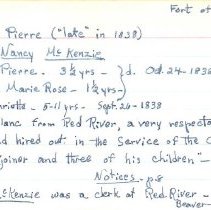 Fort of
Pierre ("late" in 1838)
Nancy McKenzie
Pierre - 3½ yrs - } d. Oct. 24 - 1838
Marie Rose - 1½ yrs -
riette - 5-11 yrs - Sept. 26 - 1838
lanc from Red River, a very respecta
d hired out in the Service of the C
joiner and three of his children" -
Notices - p.8
cKenzie was a clerk at Red River -
Beaver -